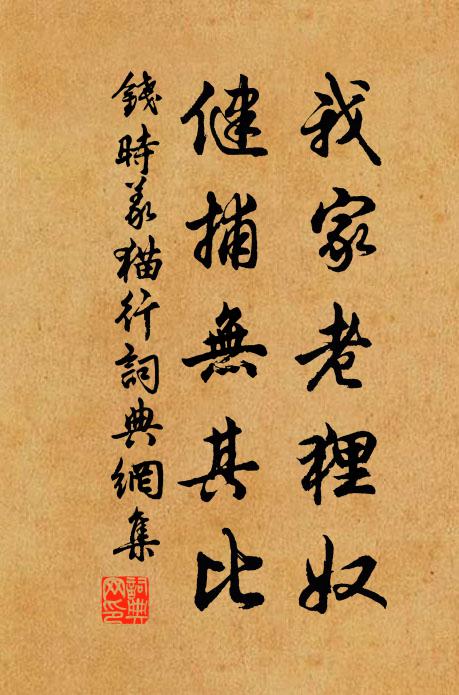 我家老狸奴
健捕無其比
錢時義猫行詞典網集
詞典網印